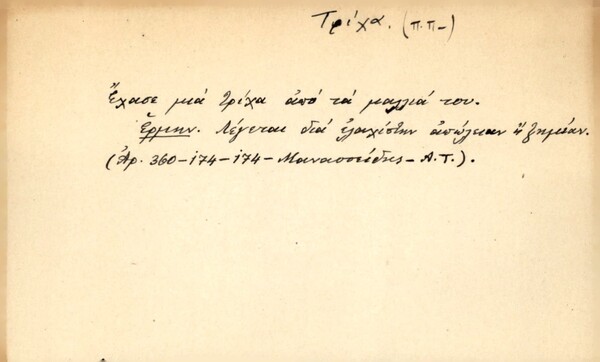 Τρίχα. (π.π-)
Ἔχασε μιά τρίχα ἀπό τά μαλλιά του.
Ἑρμην. Λέγεται διά ἐλαχίστην ἀπώλειαν ἤ ζημίαν.
(Ἀρ. 360-174-174-Μανασσείδης-Α.Τ.).